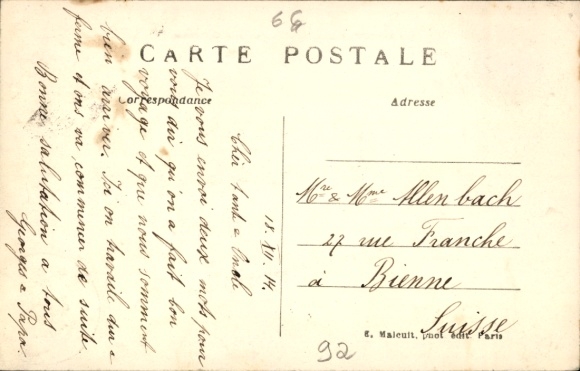 66
CARTE POSTALE
Correspondance
Adresse
18. XII. 14.
Cher tante & Oncle
Je vous envoi deux mots pour
vous dir qu'on a fait bon
voyage et que nous somment
bien arriver. Ici on travaile dur &
ferme et ons va commencer de suite.
Bonne salutation a tous
Georges & Papa
Mre & Mme Allenbach
27 rue Franche
à Bienne
Suisse
E. Malcuit, phot édit. Paris
92